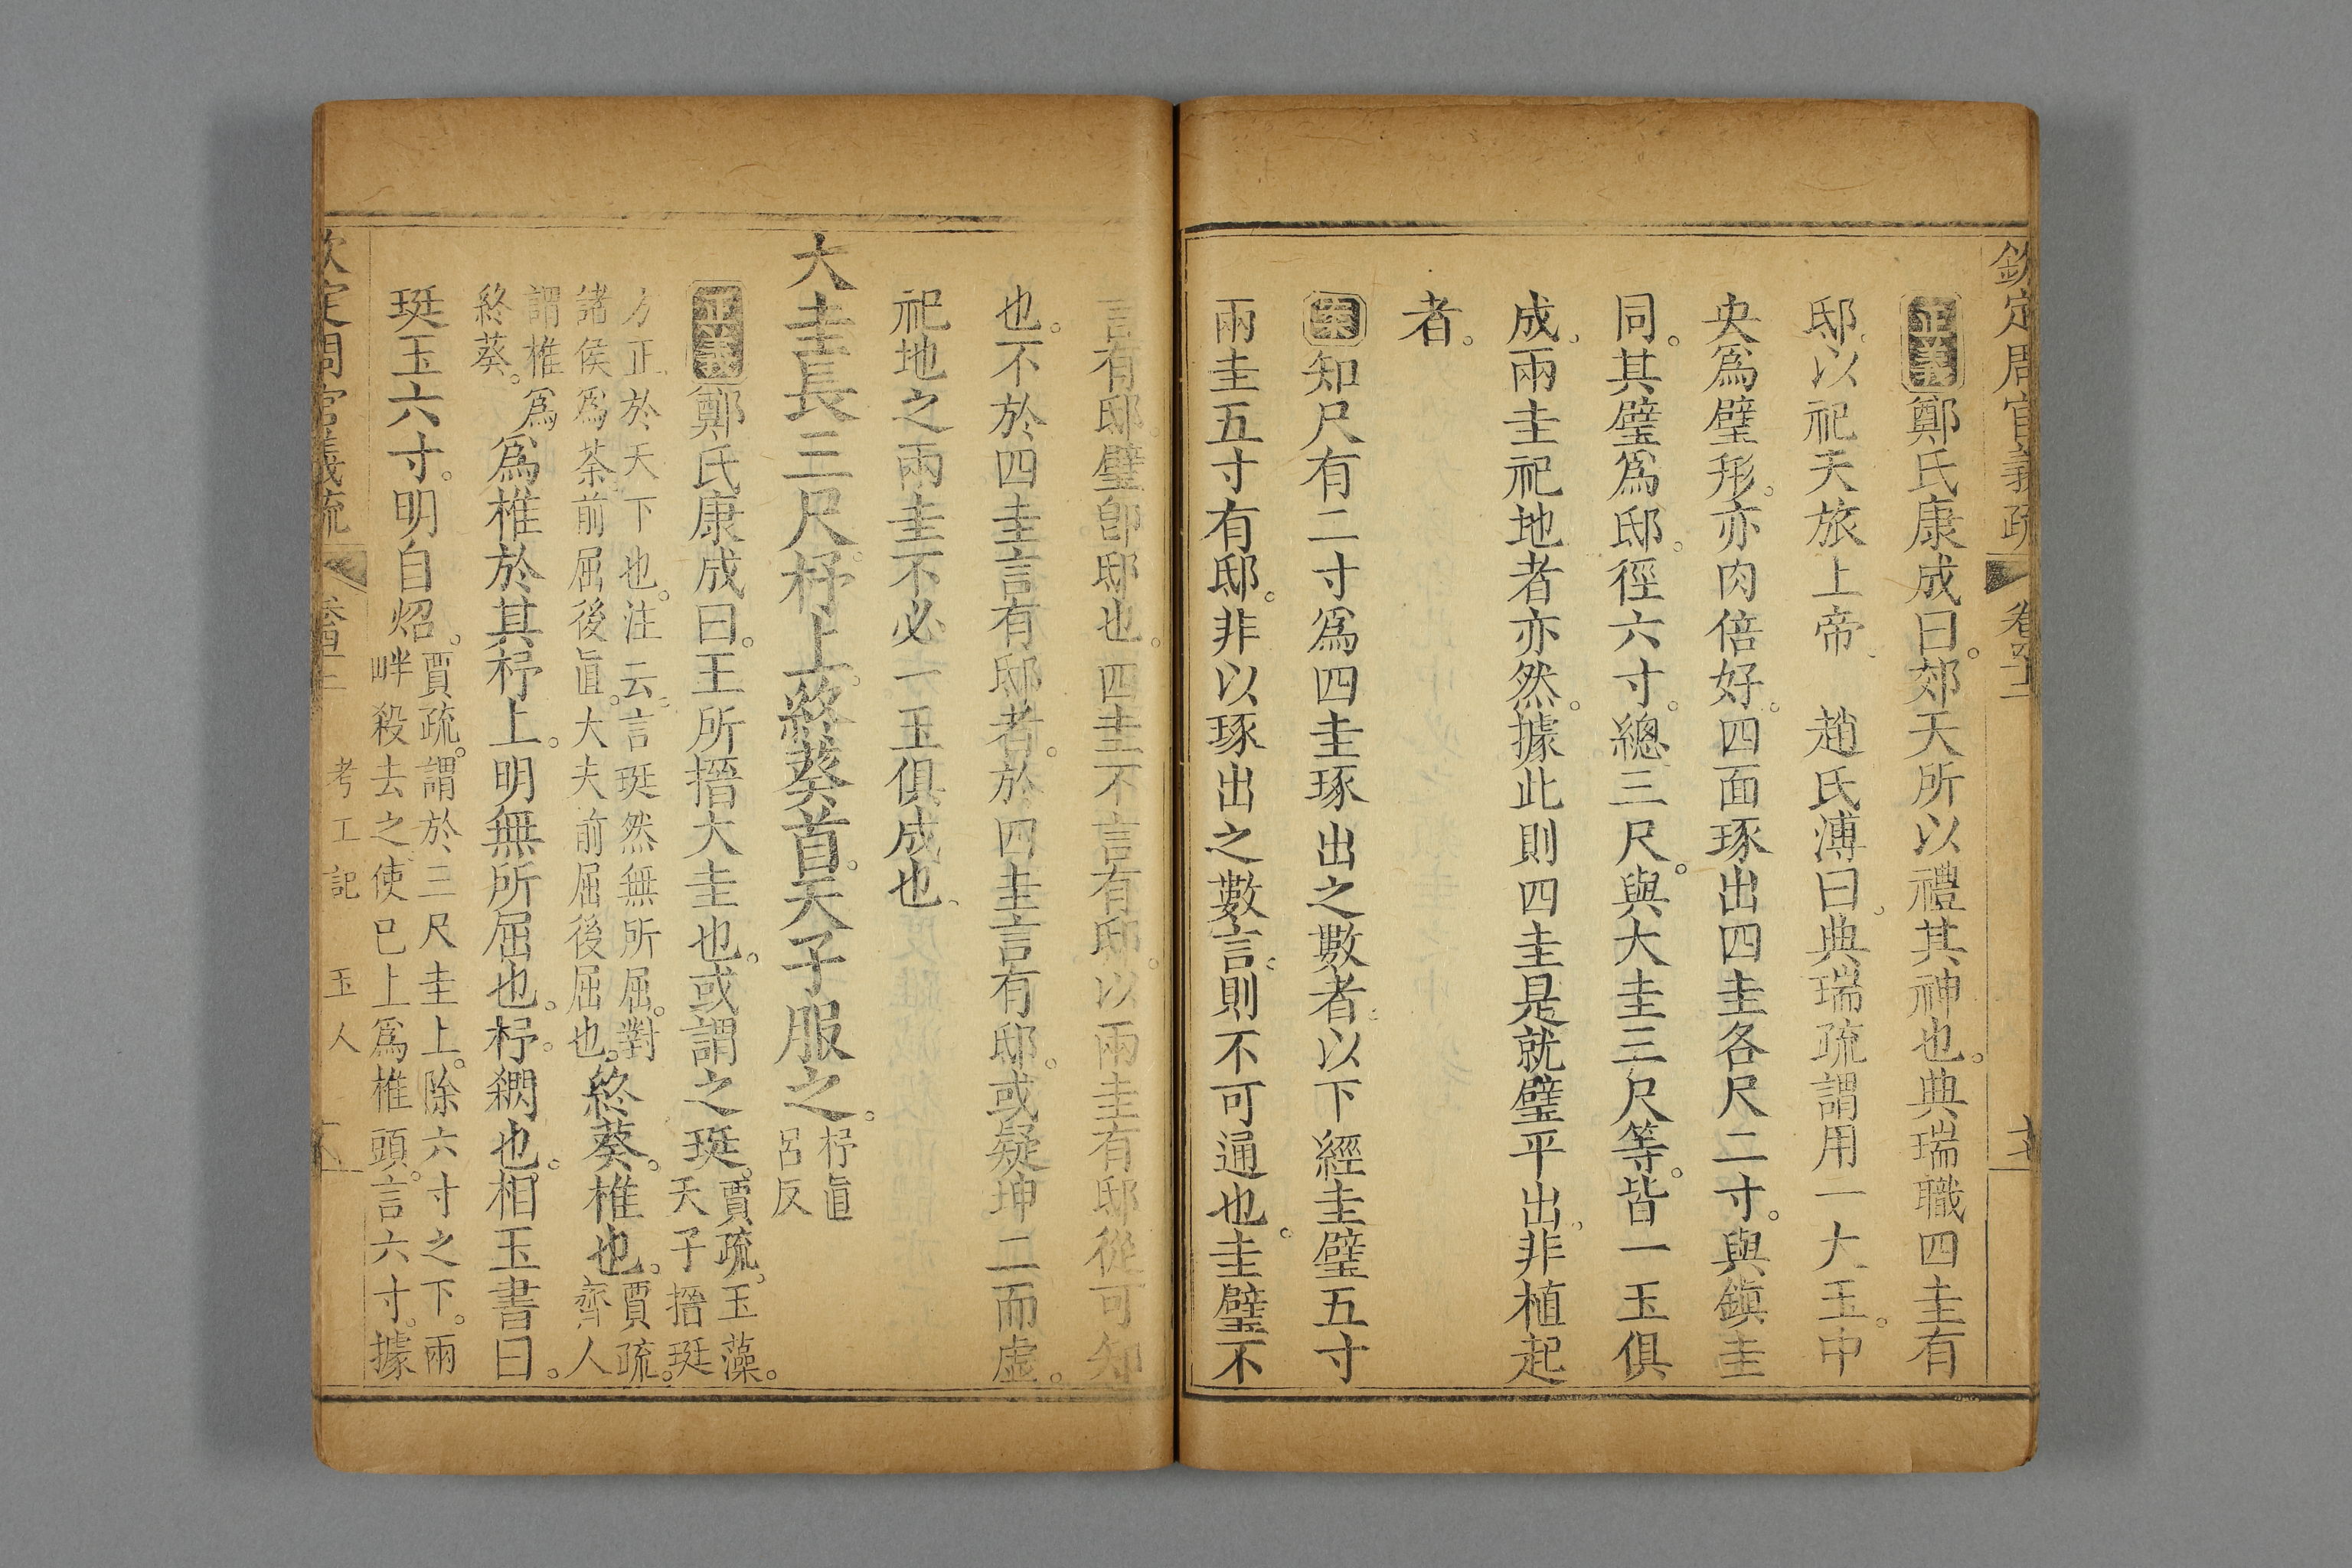 欽定周官義疏 卷四十三
正義鄭氏康成曰。郊天所以禮其神也。典瑞職四圭有
邸。以祀天旅上帝、 趙氏溥曰、典瑞疏謂用一大玉。中
央爲璧形。亦肉倍好。四面琢出四圭各尺二寸。與鎮圭
同。其璧爲邸。徑六寸。總三尺。與大圭三尺等。皆一玉俱
成、兩圭祀地者亦然。據此則四圭是就璧平出。非植起
者。
案知尺有二寸爲四圭琢出之數者、以下經圭璧五寸
兩圭五寸有邸。非以琢出之數言、則不可通也。圭璧不
言有邸。璧卽邸也。四圭不言有邸。以兩圭有邸從可知
也。不於四圭言有邸者。於四圭言有邸。或疑坤二而虛。
祀地之兩圭不必一玉俱成也、
大圭長三尺。杼上。終葵首。天子服之。杼直
呂反
正義鄭氏康成曰。王所搢大圭也。或謂之珽。賈疏。玉藻。
天子搢珽
方正於天下也。注云、言珽然無所屈。對
諸侯爲荼前屈後直。大夫前屈後屈也。終葵。椎也。賈疏。
齊人
謂椎爲
終葵。爲椎於其杼上。明無所屈也。杼。閷也。相玉書曰。
珽玉六寸。明自炤。賈疏。謂於三尺圭上。除六寸之下。兩
畔殺去之、使巳上爲椎頭。言六寸。據
欽定周官義疏 卷四十三 考工記 玉人